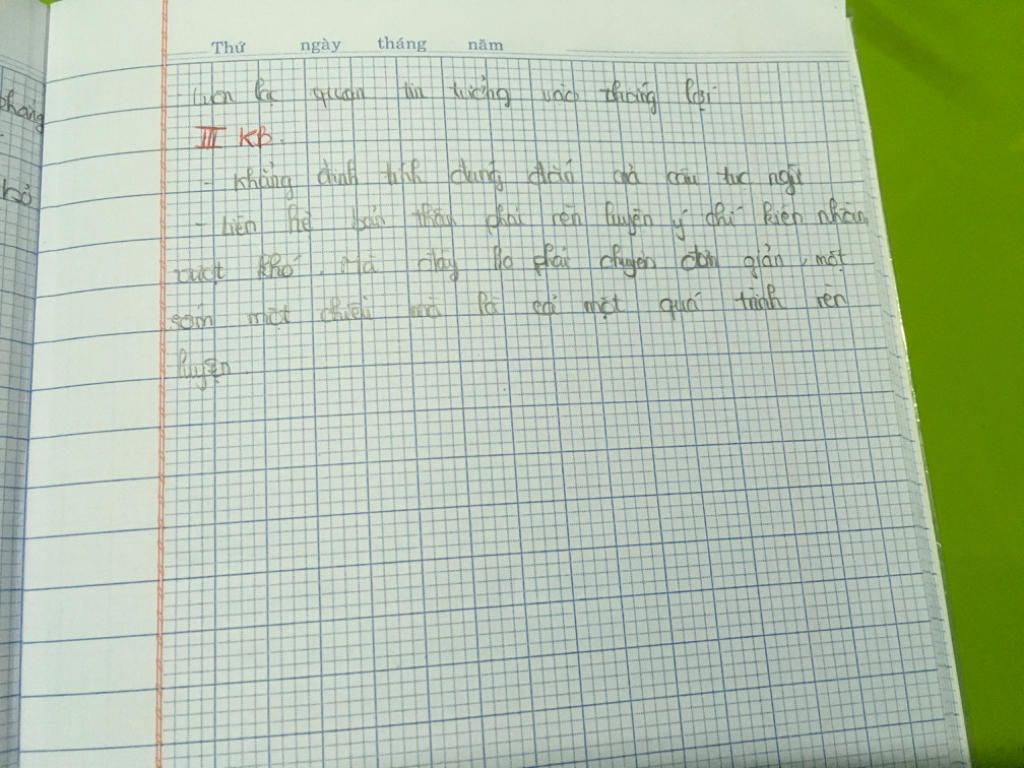 Thứ ngày tháng năm
luôn lạc quan tin tưởng vào thắng lợi.
III KB.
- Khẳng định tính đúng đắn của câu tục ngữ
- Liên hệ bản thân phải rèn luyện ý chí kiên nhẫn,
vượt khó. Mà đây ko phải chuyện đơn giản, một
sớm một chiều mà là cả một quá trình rèn
luyện.